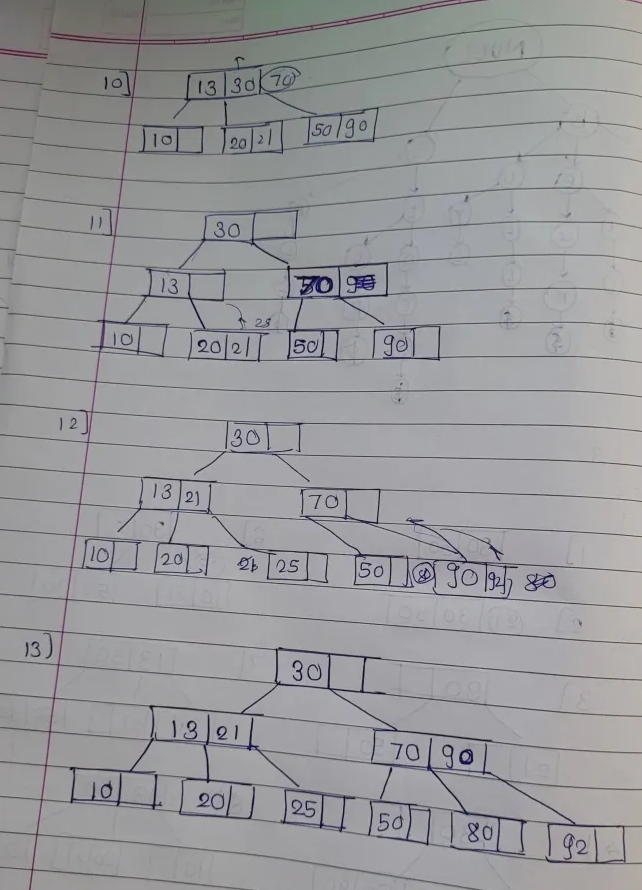 10] 13 30 70
10 20 21 50 90
11] 30
13 70
25
10 20 21 50 90
12] 30
13 21 70
10 20 25 50 90 92
13) 30
13 21 70 90
10 20 25 50 80 92